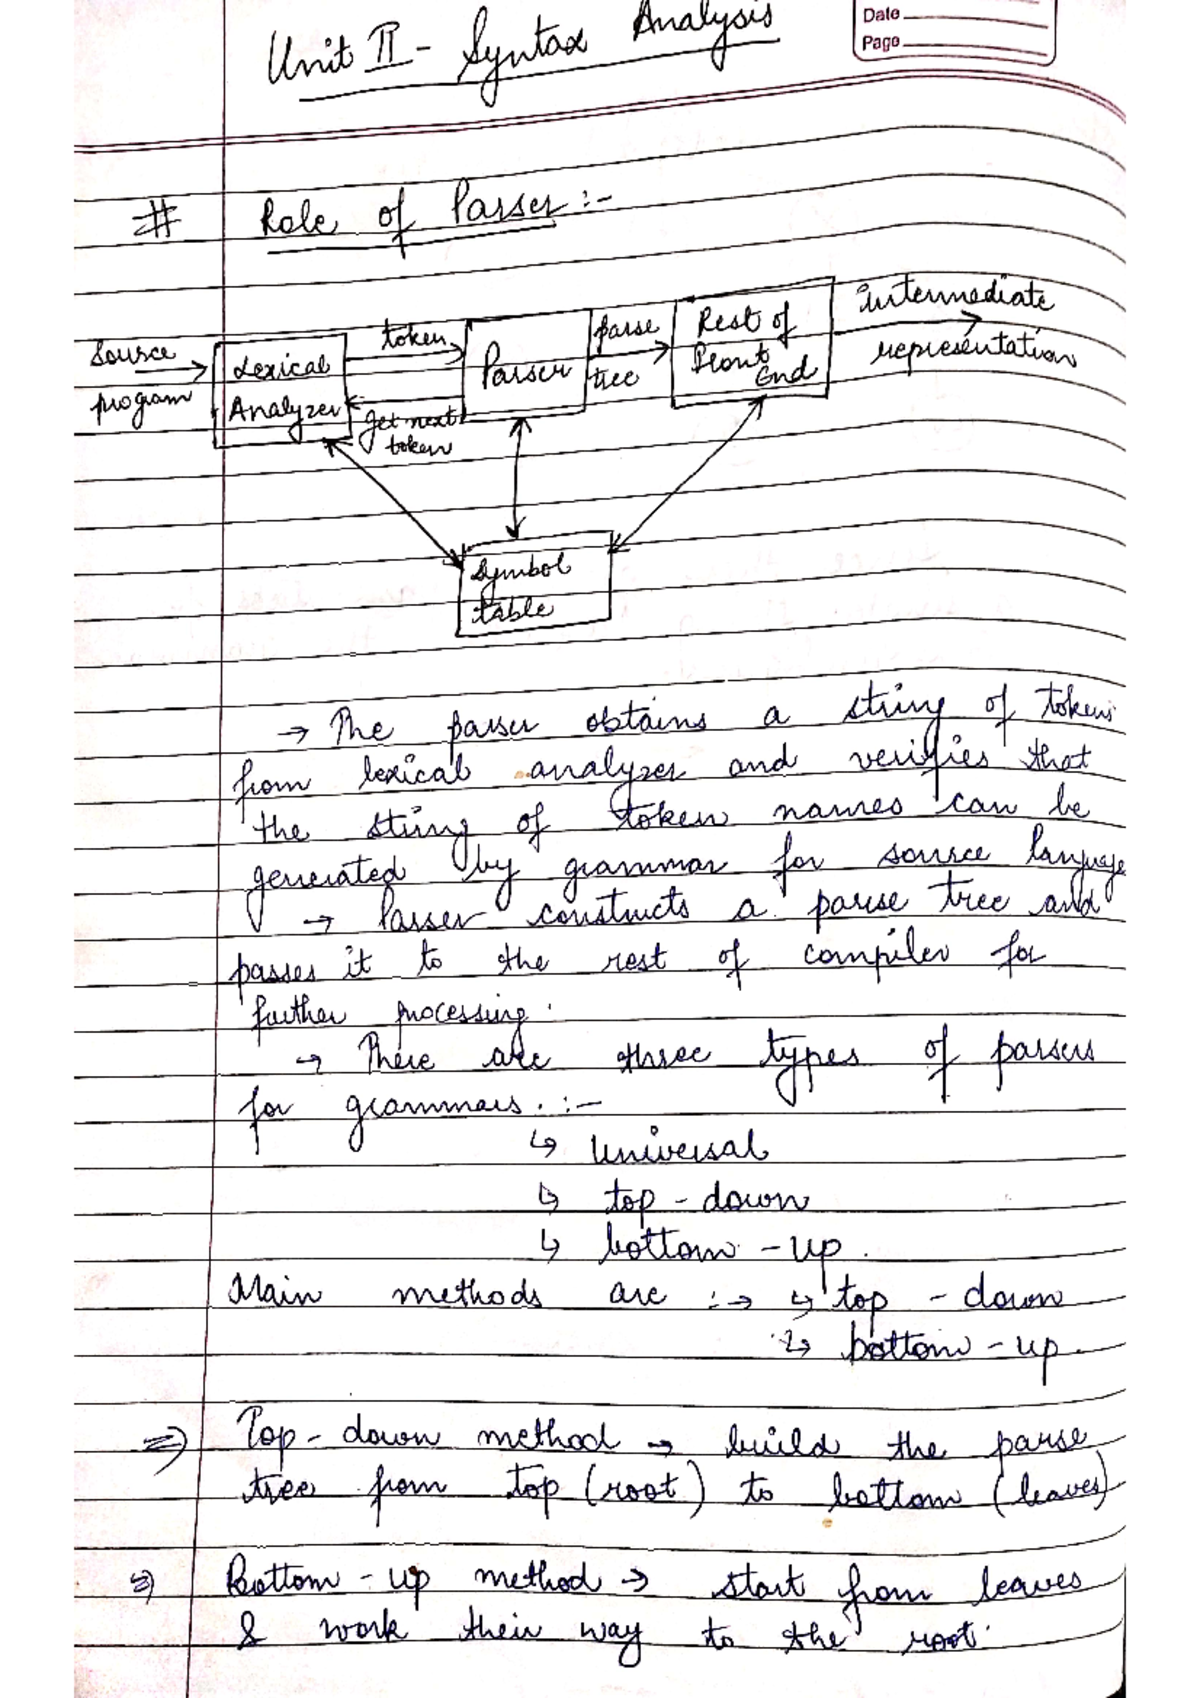 Unit II - Syntax Analysis
Date
Page
# Role of Parser :-
source
program
Lexical
Analyzer
token
get next
token
Parser
parse
tree
Rest of
Front
End
intermediate
representation
symbol
table
→ The parser obtains a string of tokens
from lexical analyzer and verifies that
the string of token names can be
generated by grammar for source language
→ Parser constructs a parse tree and
passes it to the rest of compiler for
further processing.
→ There are three types of parsers
for grammars. :-
↳ Universal
↳ top - down
↳ bottom - up.
Main methods are :→ ↳ top - down
↳ bottom - up.
⇒ Top - down method → build the parse
tree from top (root) to bottom (leaves)
⇒ Bottom - up method → start from leaves
& work their way to the root.